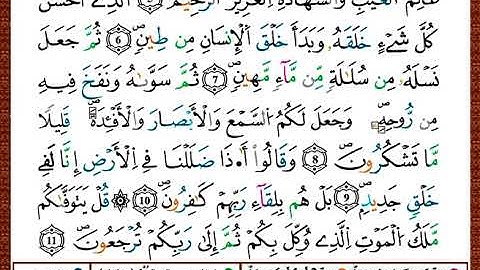 عَٰلِمُ اُ۬لْغَيْبِ وَالشَّهَٰدَةِ اِ۬لْعَزِيزُ اُ۬لرَّحِيمُ اُ۬لذِےٓ أَحْسَنَ
كُلَّ شَےْءٍ خَلَقَهُۥ وَبَدَأَ خَلْقَ اَ۬لْإِنسَٰنِ مِن طِينٖ 6 ثُمَّ جَعَلَ
نَسْلَهُۥ مِن سُلَٰلَةٖ مِّن مَّآءٖ مَّهِينٖ 7 ثُمَّ سَوَّىٰهُ وَنَفَخَ فِيهِ
مِن رُّوحِهِۦ وَجَعَلَ لَكُمُ اُ۬لسَّمْعَ وَالْأَبْصَٰرَ وَالْأَفْـِٕدَةَ قَلِيلٗا
مَّا تَشْكُرُونَ 8 وَقَالُوٓاْ أَ۟ذَا ضَلَلْنَا فِے اِ۬لْأَرْضِ إِنَّا لَفِے
خَلْقٖ جَدِيدِۭ 9 بَلْ هُم بِلِقَآءِ رَبِّهِمْ كَٰفِرُونَ 10 ۞ قُلْ يَتَوَفَّىٰكُم
مَّلَكُ اُ۬لْمَوْتِ اِ۬لذِے وُكِّلَ بِكُمْ ثُمَّ إِلَىٰ رَبِّكُمْ تُرْجَعُونَ 11